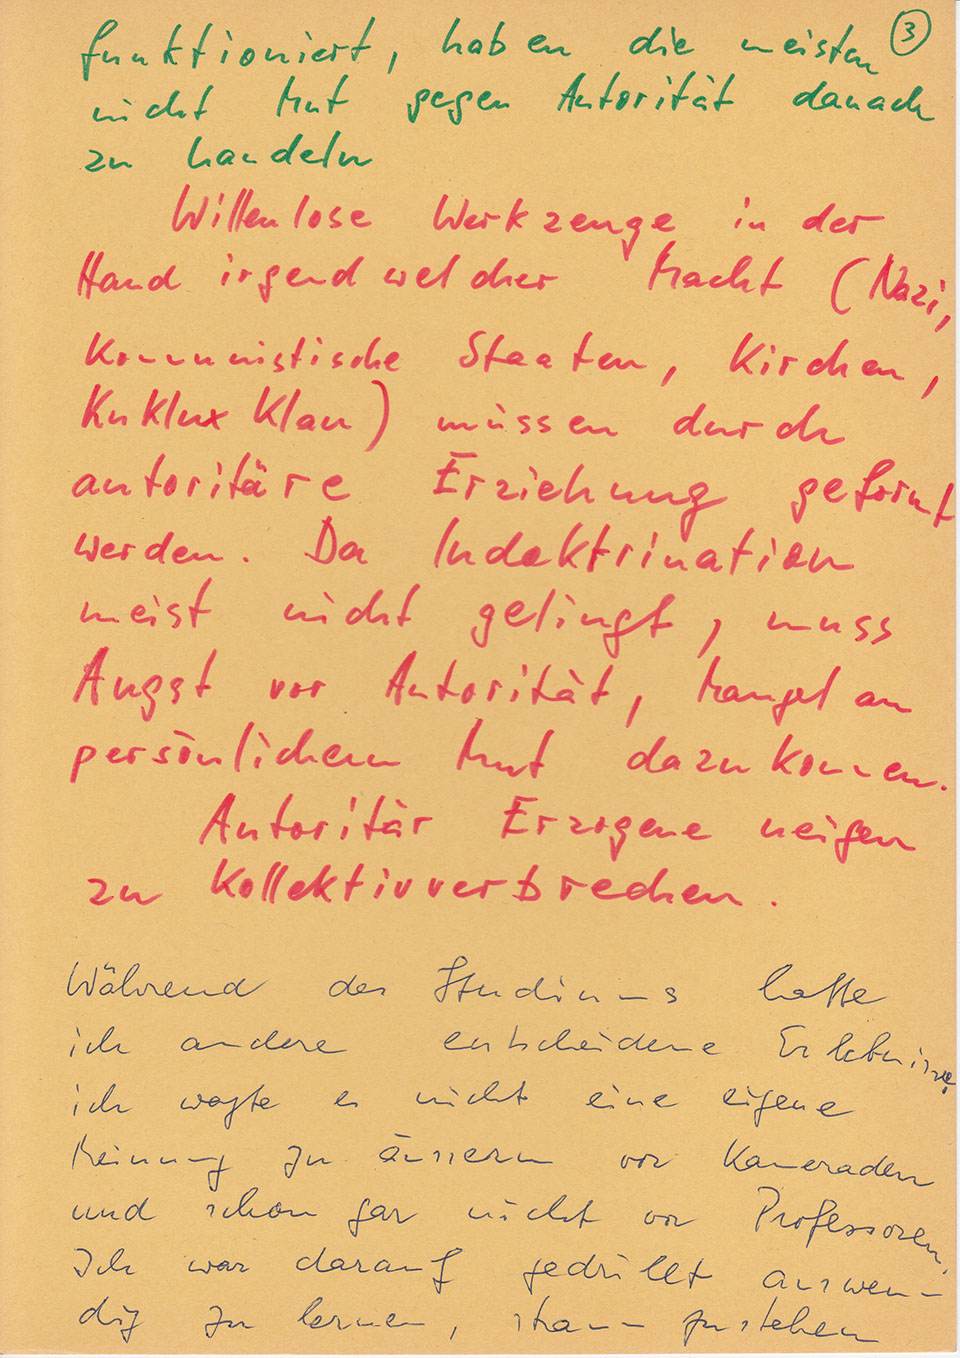 3
funktioniert, haben die meisten
nicht Mut gegen Autorität danach
zu handeln
Willenlose Werkzeuge in der
Hand irgendwelcher Macht (Nazi,
Kommunistische Staaten, Kirchen,
Kuklux Klan) müssen durch
autoritäre Erziehung geformt
werden. Da Indoktrination
meist nicht gelingt, muss
Angst vor Autorität, Mangel an
persönlichem Mut dazu kommen.
Autoritär Erzogene neigen
zu Kollektivverbrechen.
Während des Studiums hatte
ich andere entscheidene Erlebnisse.
ich wagte es nicht eine eigene
Meinung zu äussern vor Kameraden
und schon gar nicht vor Professoren,
Ich war darauf gedrillt auswen-
dig zu lernen, stramm zu stehen